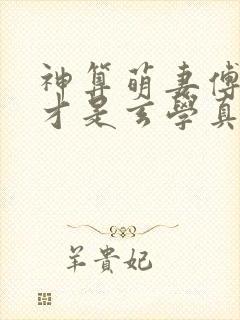 神算萌妻傅
才是玄學真
羊貴妃